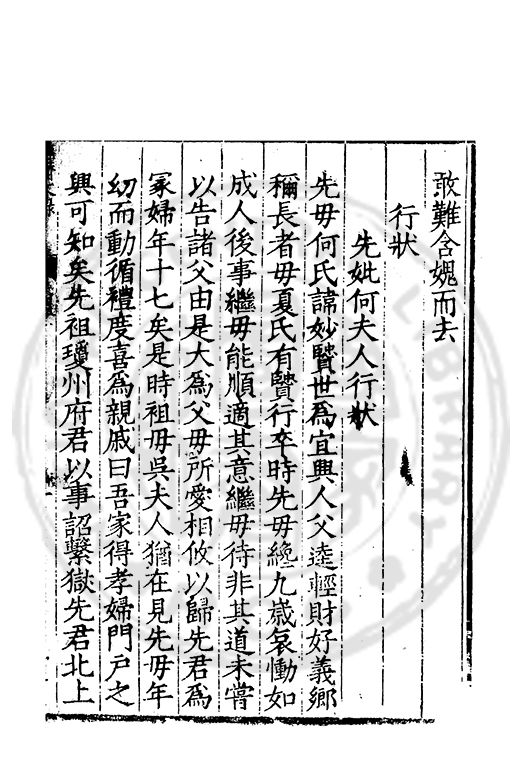 敢難含媿而去
行狀
先妣何夫人行狀
先毋何氏諱妙賢世為宜興人父逵輕財好義鄉
稱長者毋夏氏有賢行卒時先毋纔九歲哀慟如
成人後事繼毋能順適其意繼毋待非其道未嘗
以告諸父由是大為父毋所愛相攸以歸先君為
冡婦年十七矣是時祖毋吳夫人猶在見先毋年
幼而動循禮度喜為親戚曰吾家得孝婦門戶之
興可知矣先祖瓊州府君以事詔繫獄先君北上